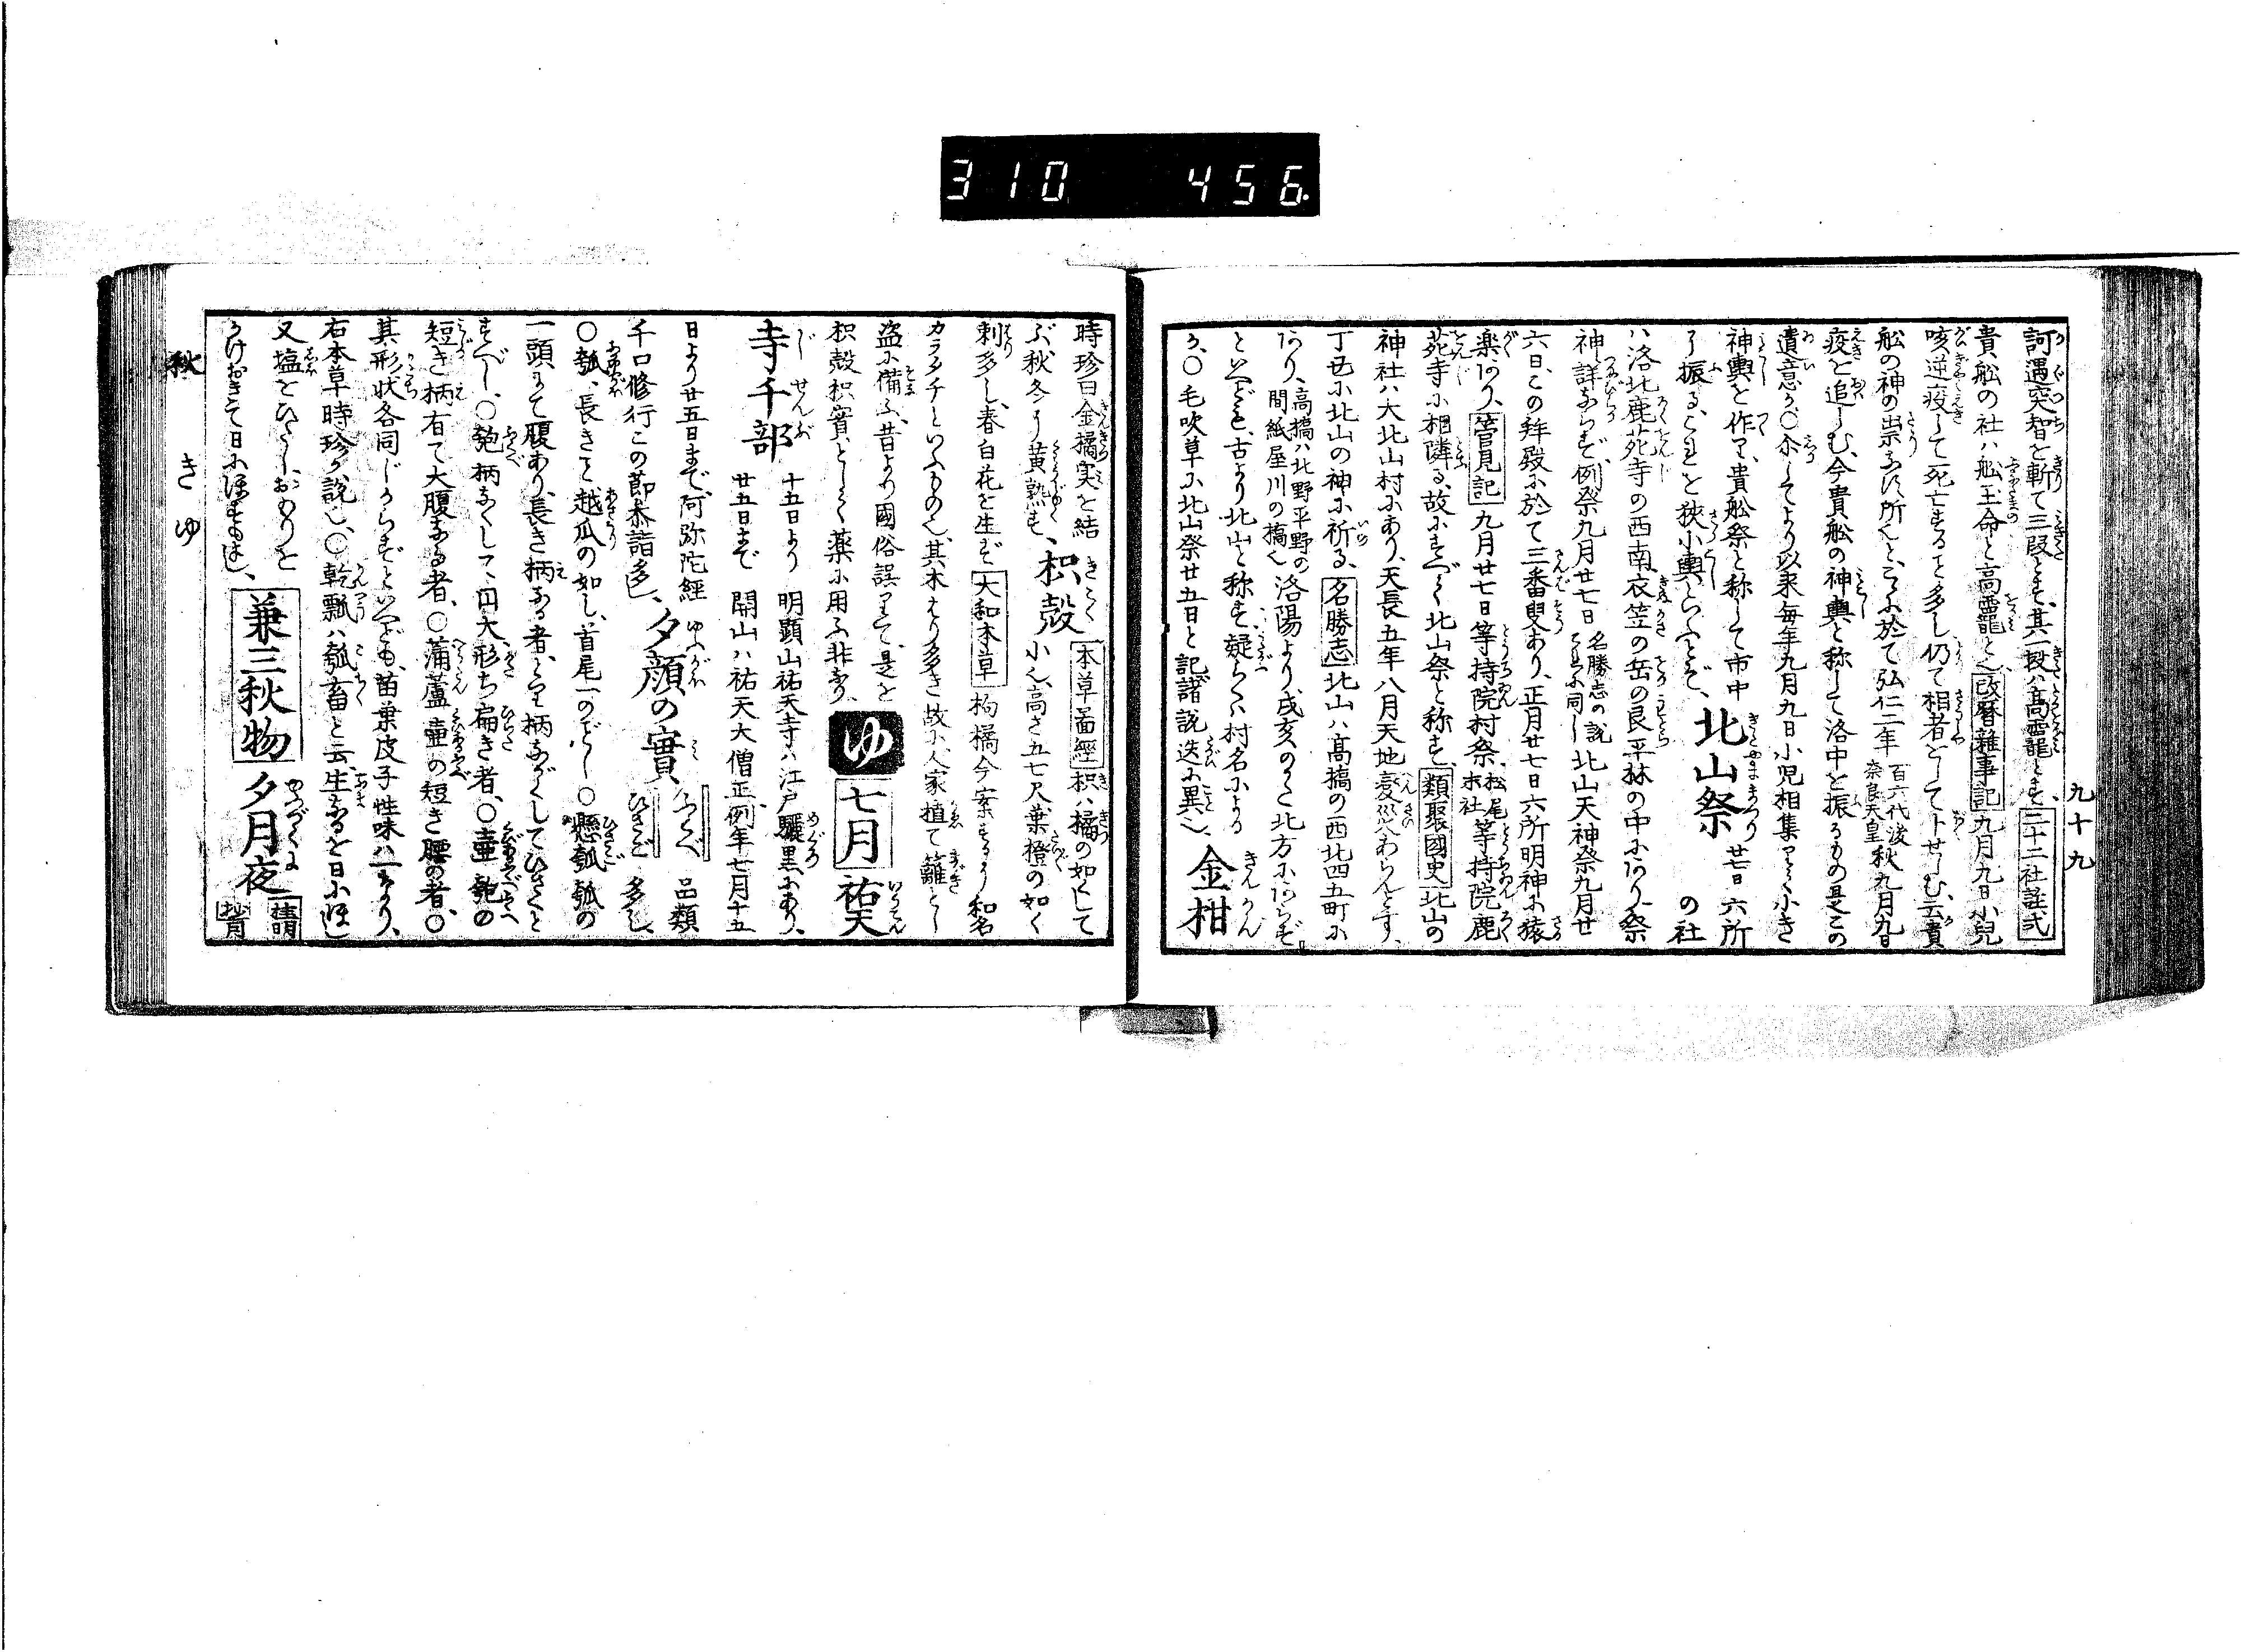 310 456
九十九
訶遇突智を斬て三段とす、其一段ハ高龗とす、二十二社註式
貴舩の社ハ舩玉命と高龗と也、改暦雜事記九月九日小兒
咳逆疫して死亡するを多し仍て相者をしてトせしむ、云貴
舩の神の祟なす所也と、こゝに於て弘仁二年 百六代後奈良天皇 秋九月九日
疫を追しむ、今貴舩の神輿と称して洛中を振るもの是この
遺意か、○尓してより以来毎年九月九日小児相集りて小き
神輿を作り、貴舩祭と称して市中 北山祭 廿七日六所の社
ハ洛北鹿苑寺の西南、衣笠の岳の艮平林の中にあり、祭
神詳ならず、例祭九月廿七日 名勝志の説 同し 北山天神祭九月廿
六日、この拜殿に於て三番叟あり、正月廿七日六所明神に猿
楽あり、菅見記 九月廿七日等持院村祭、松尾末社等持院鹿
苑寺に相隣る、故にすべて北山祭と称す、類聚國史 北山の
神社ハ大北山村にあり、天長五年八月天地
丁丑に北山の神に祈る、名勝志 北山ハ高橋の西北四五町に
あり、高橋ハ北野平野の間紙屋川の橋也 洛陽より、戌亥のかた北方にあらず
といへども、古より北山と称す、疑らくハ村名による
か、○毛吹草に北山祭廿五日と記諸説迭に異也、金柑
時珍曰金橘実を結 枳殻 本草啚經 枳ハ橘の如くして
ぶ、秋冬に黄熟す、 小也、高さ五七尺、葉橙の如く
刺多し、春白花を生ず 大和本草 枸橘今案するに和名
カラタチといふもの也、其木はり多き故に人家植て籬とし
盗に備ふ、昔より國俗誤りて、是を
枳殻枳實として薬に用ふ非なり、 ゆ 七月 祐天
寺千部 十五日より廿五日まで 明顕山祐天寺ハ江戸驪黒にあり、
開山ハ祐天大僧正、例年七月十五
日より廿五日まで、阿弥陀經
千口修行この節参詣多し、夕顔の實 ふくべ ひさご 品類多し
○瓠、長きを、越瓜の如し、首尾一のごとし ○懸瓠 瓠の
一頭にて腹あり、長き柄ある者、 柄ながくしてひさくと
すべし、○匏柄なくして、円大、形ち扁き者、○壷 匏の
短き柄有て大腹なる者、○蒲蘆 壷の短き腰の者、○
其形状各同じからずといへども、苗葉皮子性味ハ一なり、
右本草時珍が説也、○乾瓢ハ瓠畜と云、生なるを日にほし
又塩をひたし、おもりを 兼三秋物 夕月夜
かけおきて日にほすもよし、
秋 き ゆ